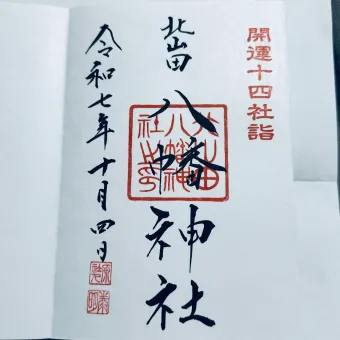 開運十四社詣
北山田
八幡神社
令和七年十月四日